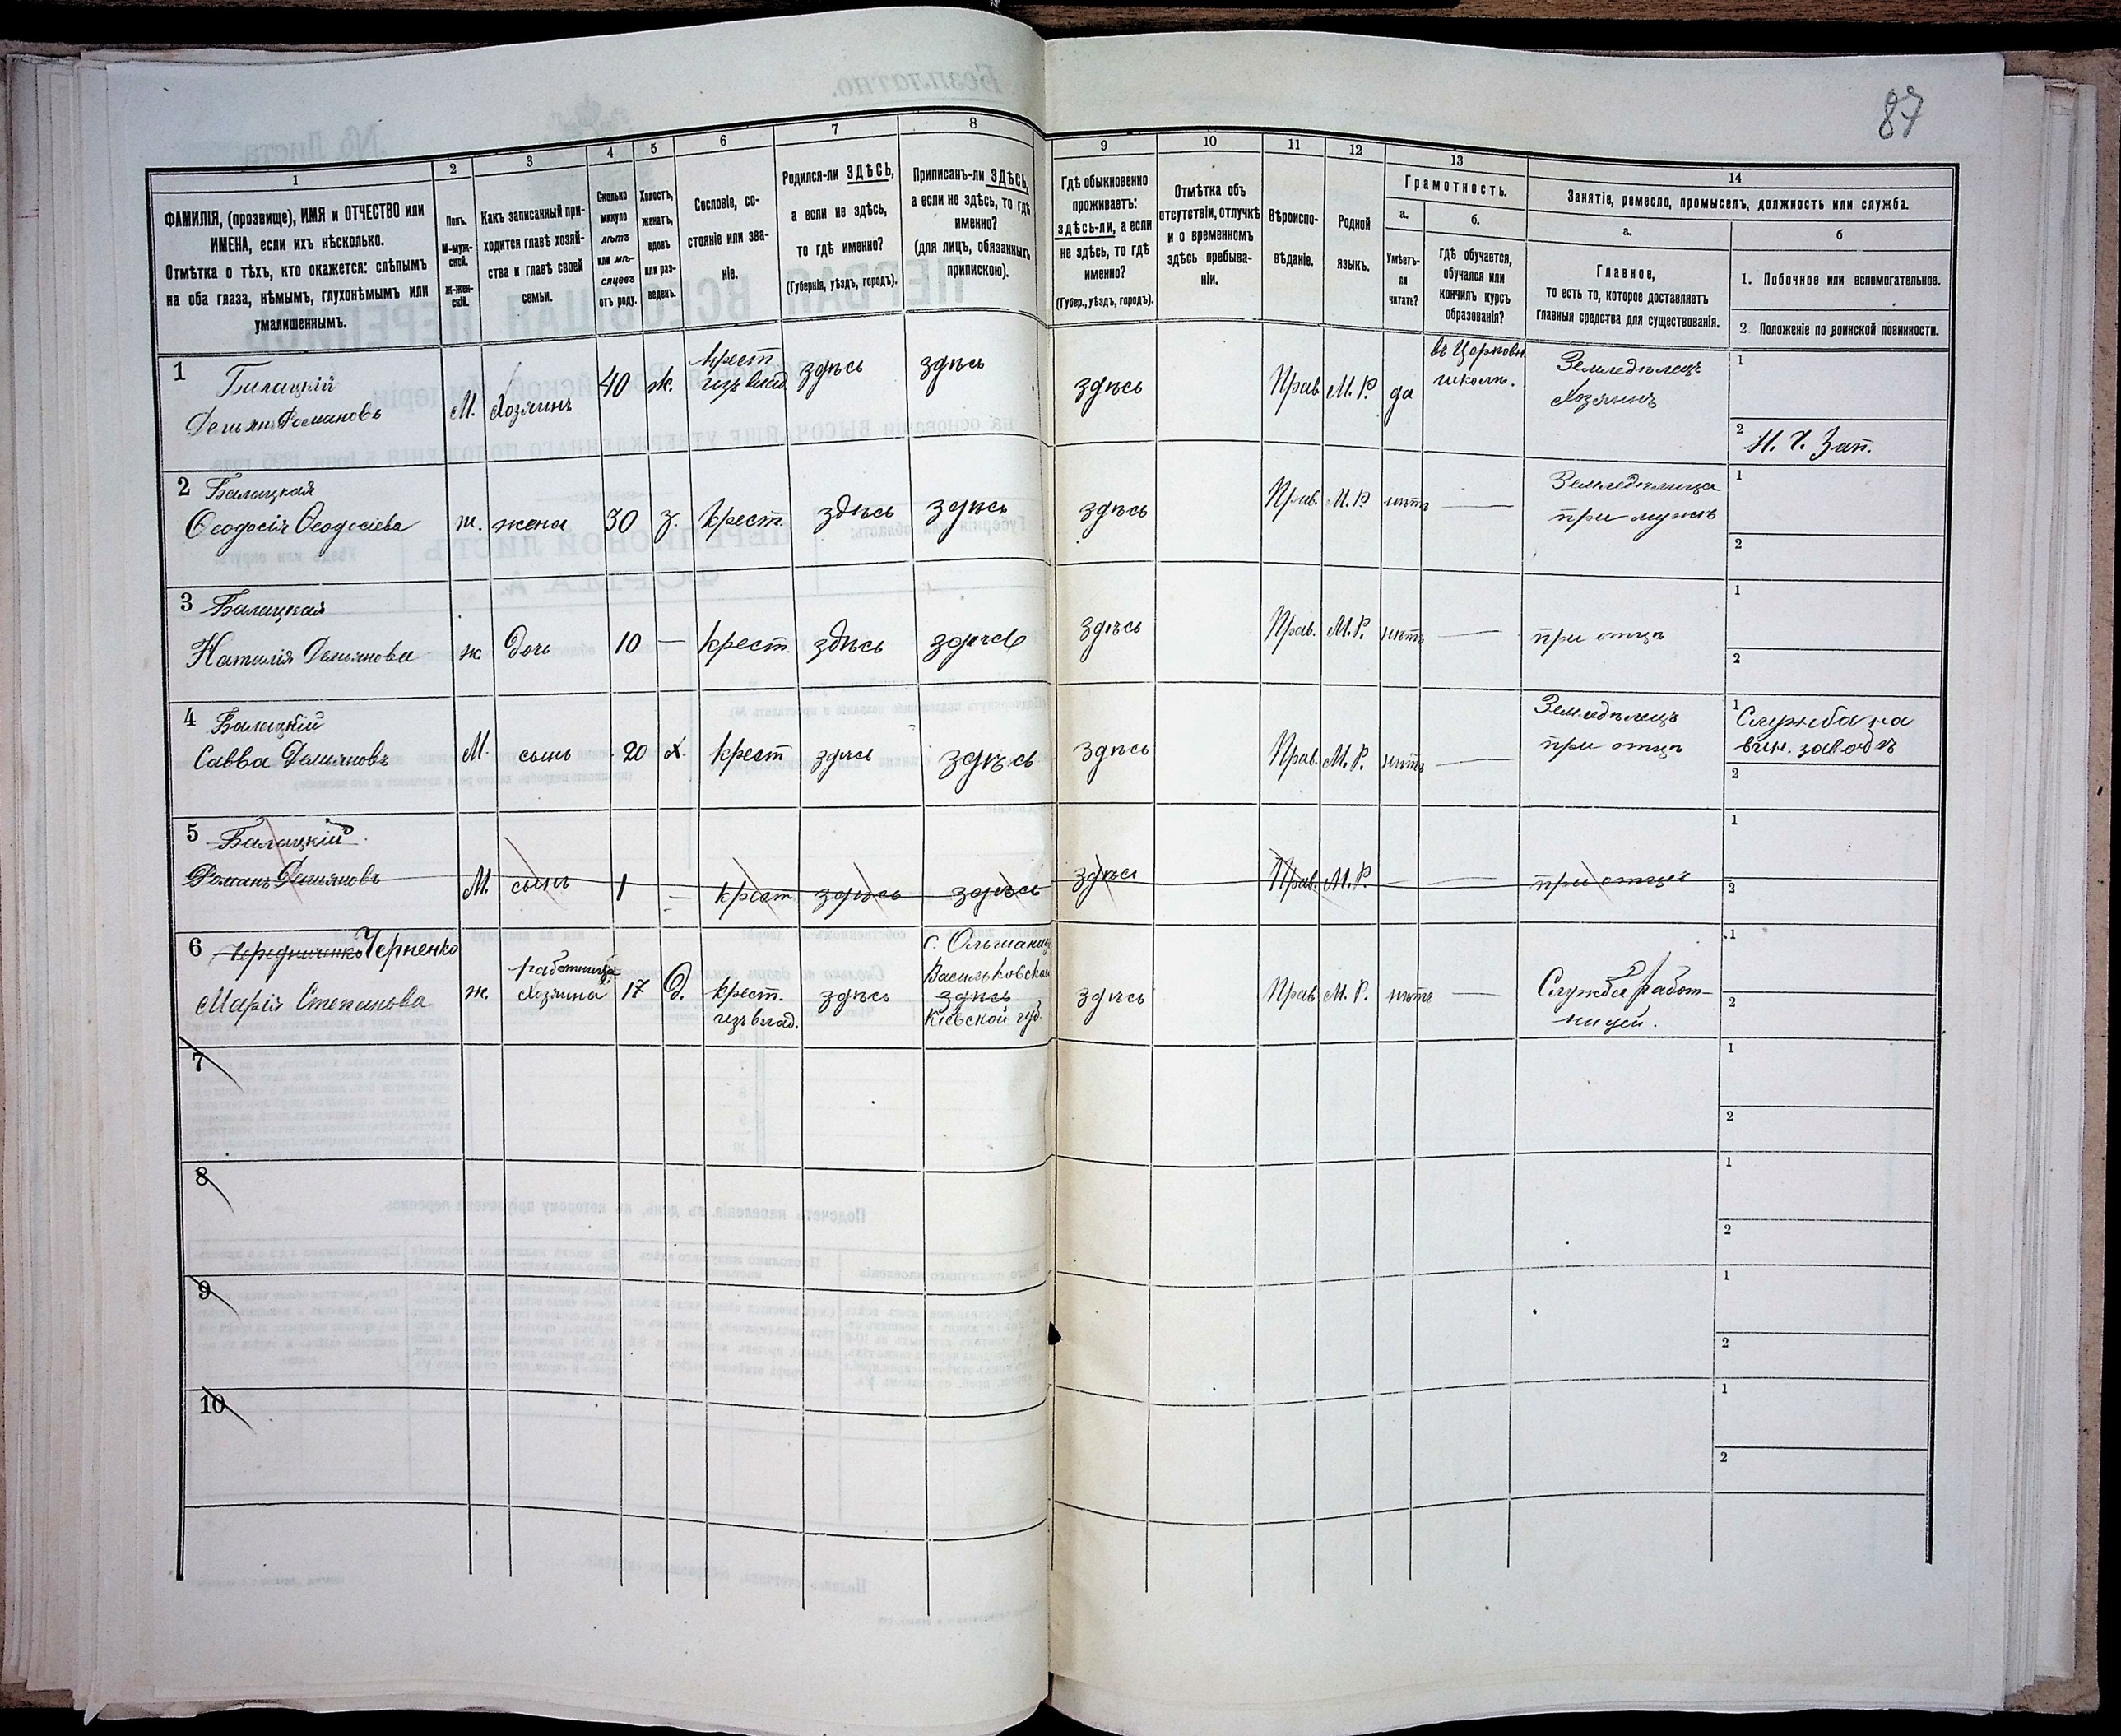 87
1
2
3
4
5
6
7
8
9
10
11
12
13
14
ФАМИЛІЯ, (прозвище), ИМЯ и ОТЧЕСТВО или
ИМЕНА, если ихъ нѣсколько.
Отмѣтка о тѣхъ, кто окажется: слѣпымъ
на оба глаза, нѣмымъ, глухонѣмымъ или
умалишеннымъ.
Полъ.
М-муж-
ской.
Ж-жен-
скій.
Какъ записанный при-
ходится главѣ хозяй-
ства и главѣ своей
семьи.
Сколько
минуло
лѣтъ
или мѣ-
сяцевъ
отъ роду.
Холостъ,
женатъ,
вдовъ
или раз-
веденъ.
Сословіе, со-
стояніе или зва-
ніе.
Родился-ли ЗДѢСЬ,
а если не здѣсь,
то гдѣ именно?
(Губернія, уѣздъ, городъ).
Приписанъ-ли ЗДѢСЬ,
а если не здѣсь, то гдѣ
именно?
(для лицъ, обязанныхъ
припискою).
Гдѣ обыкновенно
проживаетъ:
здѣсь-ли, а если
не здѣсь, то гдѣ
именно?
(Губер., уѣздъ, городъ).
Отмѣтка объ
отсутствіи, отлучкѣ
и о временномъ
здѣсь пребыва-
ніи.
Вѣроиспо-
вѣданіе.
Родной
языкъ.
Грамотность.
а.
Умѣетъ-
ли
читать?
б.
гдѣ обучается,
обучался или
кончилъ курсъ
образованія?
Занятіе, ремесло, промыселъ, должность или служба.
а.
Главное,
то есть то, которое доставляетъ
главныя средства для существованія.
б
1. Побочное или вспомогательное.
2. Положеніе по воинской повинности.
1 Балацкій
Демьянъ Романовъ
М. Хозяинъ 40 ж.
крест
изъ влад.
здѣсь здѣсь здѣсь Прав М. Р. да
въ Церковн.
школѣ.
Земледѣлецъ
Хозяинъ
1
2 Н. Ч. Зап.
2 Балацкая
Ѳеодосія Ѳеодосіева
ж. жена 30 з. крест. здѣсь здѣсь здѣсь Прав. М. Р нѣтъ —
Земледѣлица
при мужѣ
1
2
3 Балацкая
Наталія Демьянова
ж. Дочь 10 — крест. здѣсь здѣсь здѣсь Прав. М. Р. нѣтъ —
при отцѣ
1
2
4 Балацкій
Савва Демьяновъ
М. сынъ 20 Х. крест здѣсь здѣсь здѣсь Прав. М. Р. нѣтъ —
Земледѣлецъ
при отцѣ
1 Служба на
вин. заводѣ
2
5 Балацкій
Романъ Демьяновъ
М. сынъ 1 — крест здѣсь здѣсь здѣсь Прав. М. Р. — —
при отцѣ
1
2
6 Чередниченко Черненко
Марія Степанова
ж.
работница
Хозяина
17 д.
крест.
изъ влад.
здѣсь
с. Ольшаница
Васильковской
здѣсь
Кіевской губ.
здѣсь Прав М. Р. нѣтъ —
Служба работ-
ницей.
1
2
7
1
2
8
1
2
9
1
2
10
1
2